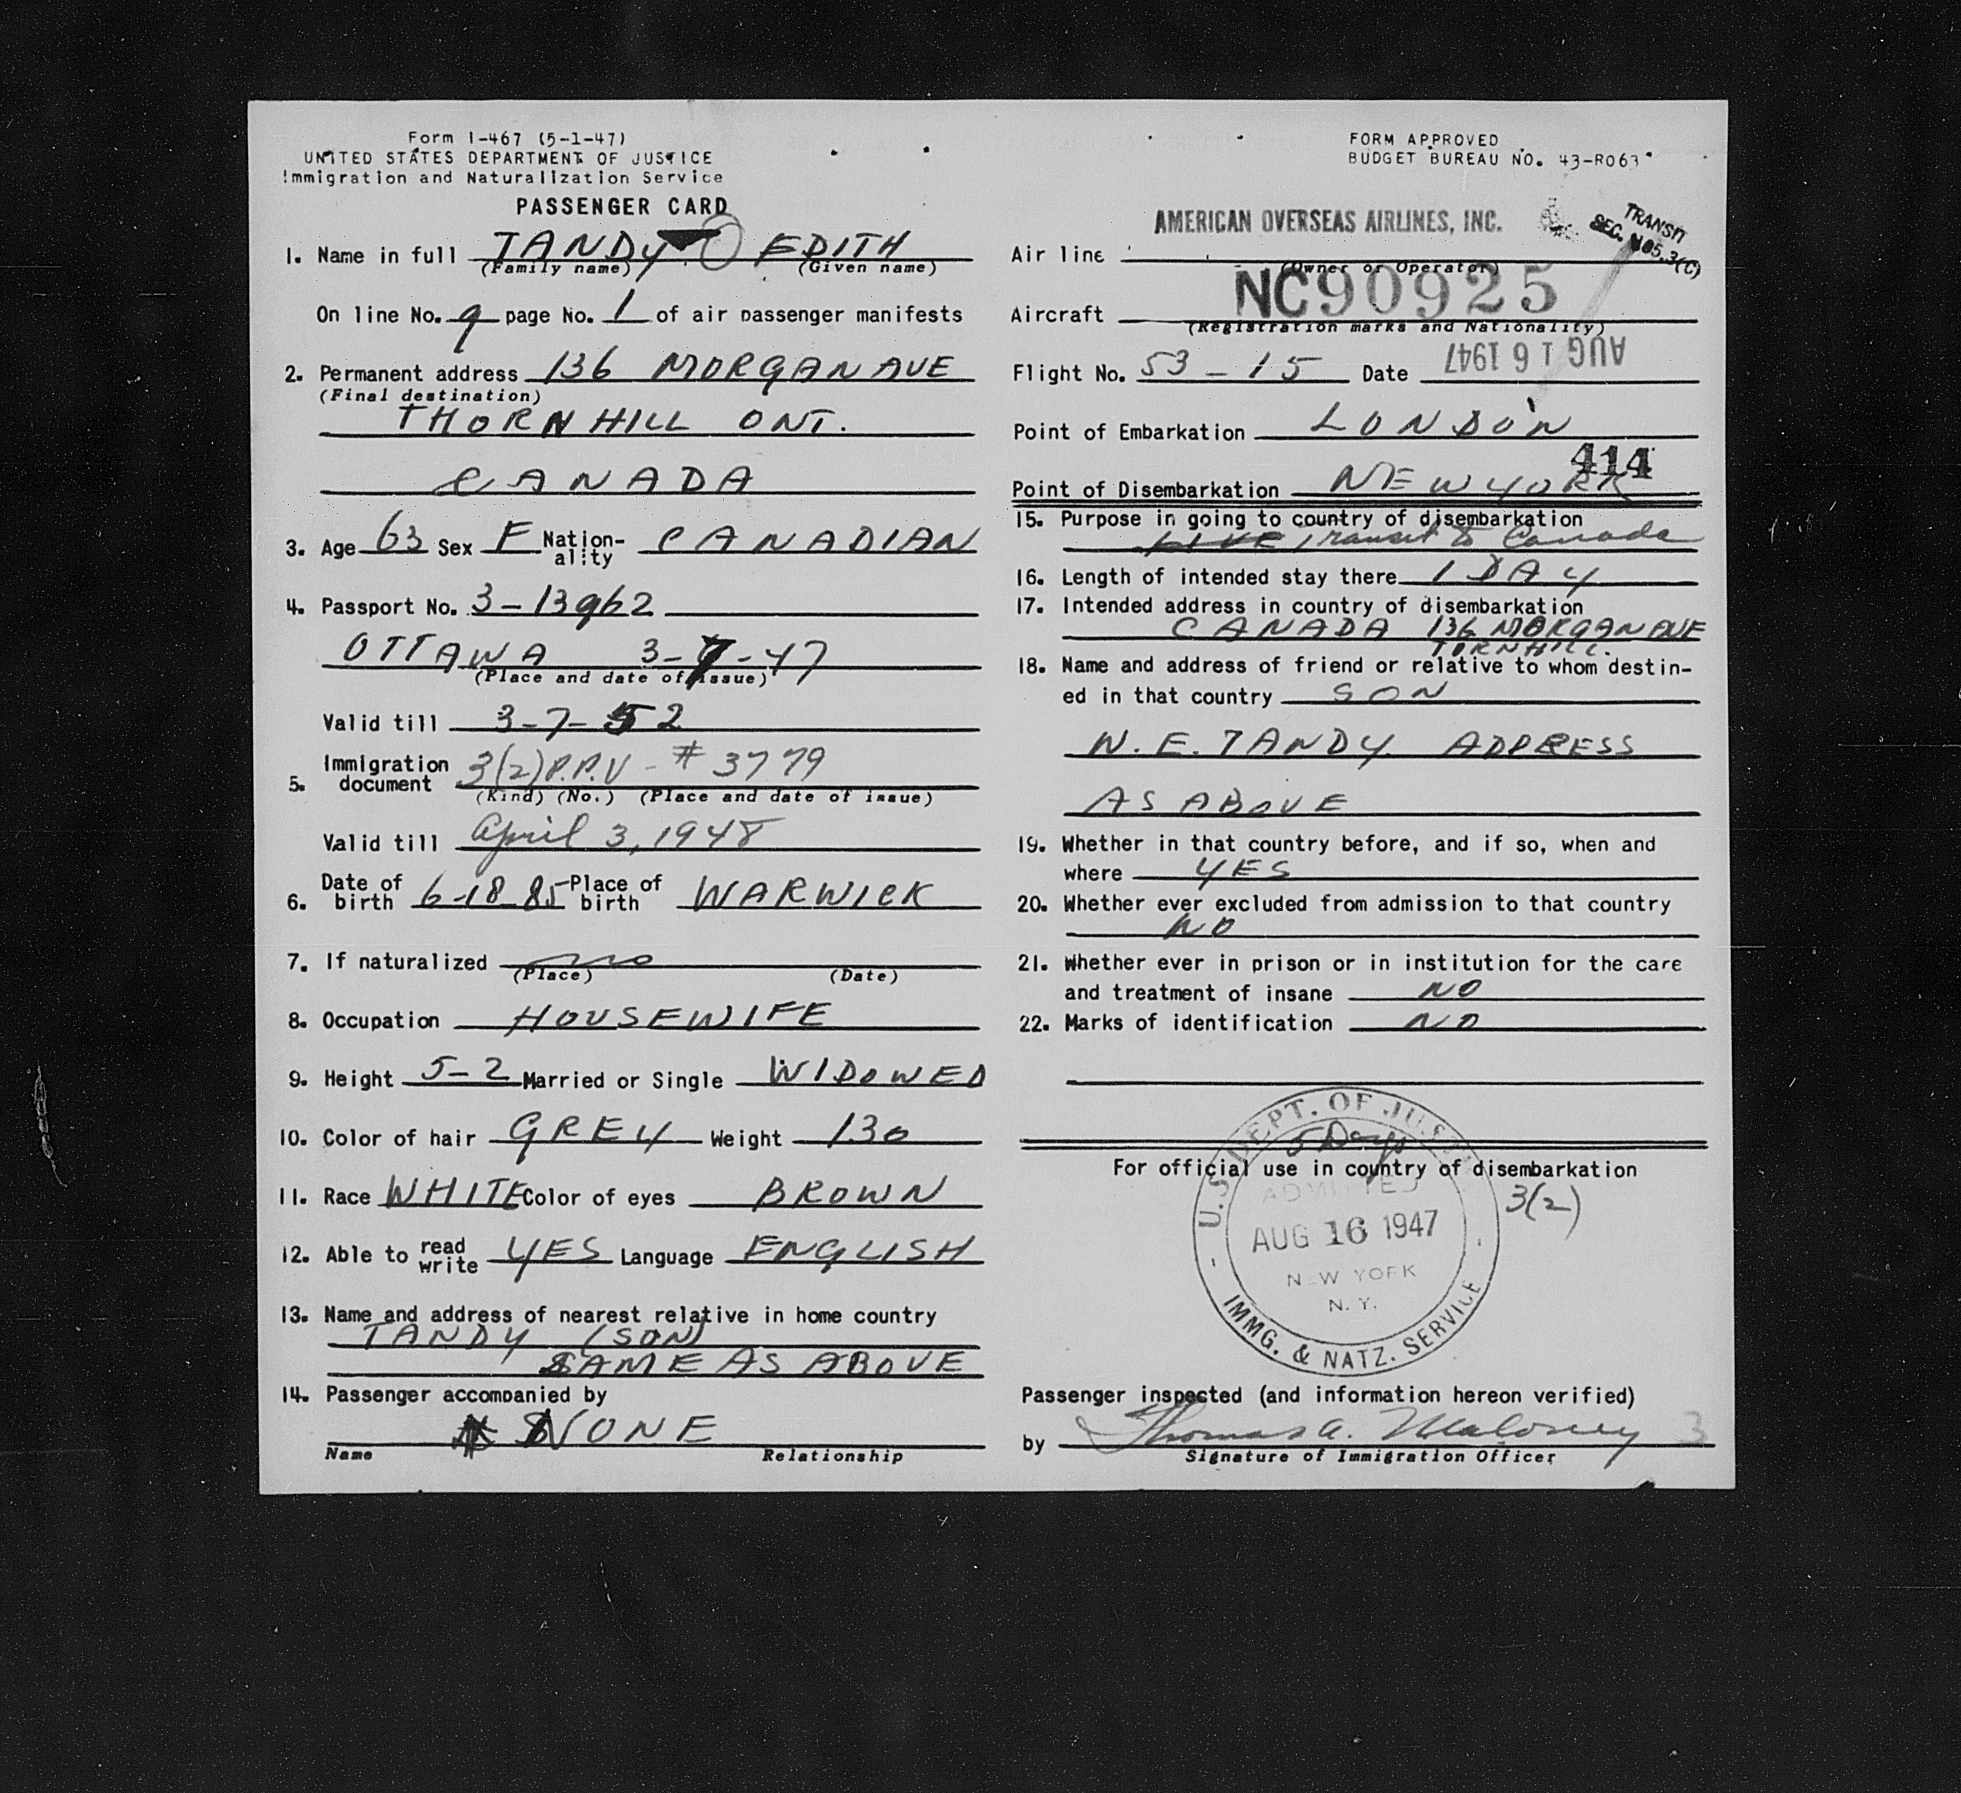 Form I-467 (5-1-47)
UNITED STATES DEPARTMENT OF JUSTICE
Immigration and Naturalization Service
PASSENGER CARD
1. Name in full TANDY EDITH
(Family name) (Given name)
On line No. 9 page No. 1 of air passenger manifests
2. Permanent address 136 MORGAN AVE
(Final destination)
THORNHILL ONT.
CANADA
3. Age 63 Sex F Nation-ality CANADIAN
4. Passport No. 3-13962
OTTAWA 3-7-47
(Place and date of issue)
Valid till 3-7-52
5. Immigration document 3(2) P.P.V - # 3779
(Kind) (No.) (Place and date of issue)
Valid till April 3, 1948
6. Date of birth 6-18-85 Place of birth WARWICK
7. If naturalized no
(Place) (Date)
8. Occupation HOUSEWIFE
9. Height 5-2 Married or Single WIDOWED
10. Color of hair GREY Weight 130
11. Race WHITE Color of eyes BROWN
12. Able to read write YES Language ENGLISH
13. Name and address of nearest relative in home country
TANDY (SON)
SAME AS ABOVE
14. Passenger accompanied by
NONE
Name Relationship
FORM APPROVED
BUDGET BUREAU NO. 43-R063
TRANSIT
SEC. 105.3(C)
AMERICAN OVERSEAS AIRLINES, INC.
Air line
(Owner or Operator)
NC90925
Aircraft
(Registration marks and Nationality)
Flight No. 53-15 Date AUG 16 1947
Point of Embarkation LONDON
414
Point of Disembarkation NEW YORK
15. Purpose in going to country of disembarkation
LIVE Transit to Canada
16. Length of intended stay there 1 DAY
17. Intended address in country of disembarkation
CANADA 136 MORGAN AVE
TORNHILL.
18. Name and address of friend or relative to whom destin-
ed in that country SON
W. E. TANDY. ADDRESS
AS ABOVE
19. Whether in that country before, and if so, when and
where YES
20. Whether ever excluded from admission to that country
NO
21. Whether ever in prison or in institution for the care
and treatment of insane NO
22. Marks of identification NO
5 Days
For official use in country of disembarkation
3(2)
U.S. DEPT. OF JUSTICE
ADMITTED
AUG 16 1947
NEW YORK
N. Y.
IMMG. & NATZ. SERVICE
Passenger inspected (and information hereon verified)
by Thomas A. Maloney 3
Signature of Immigration Officer